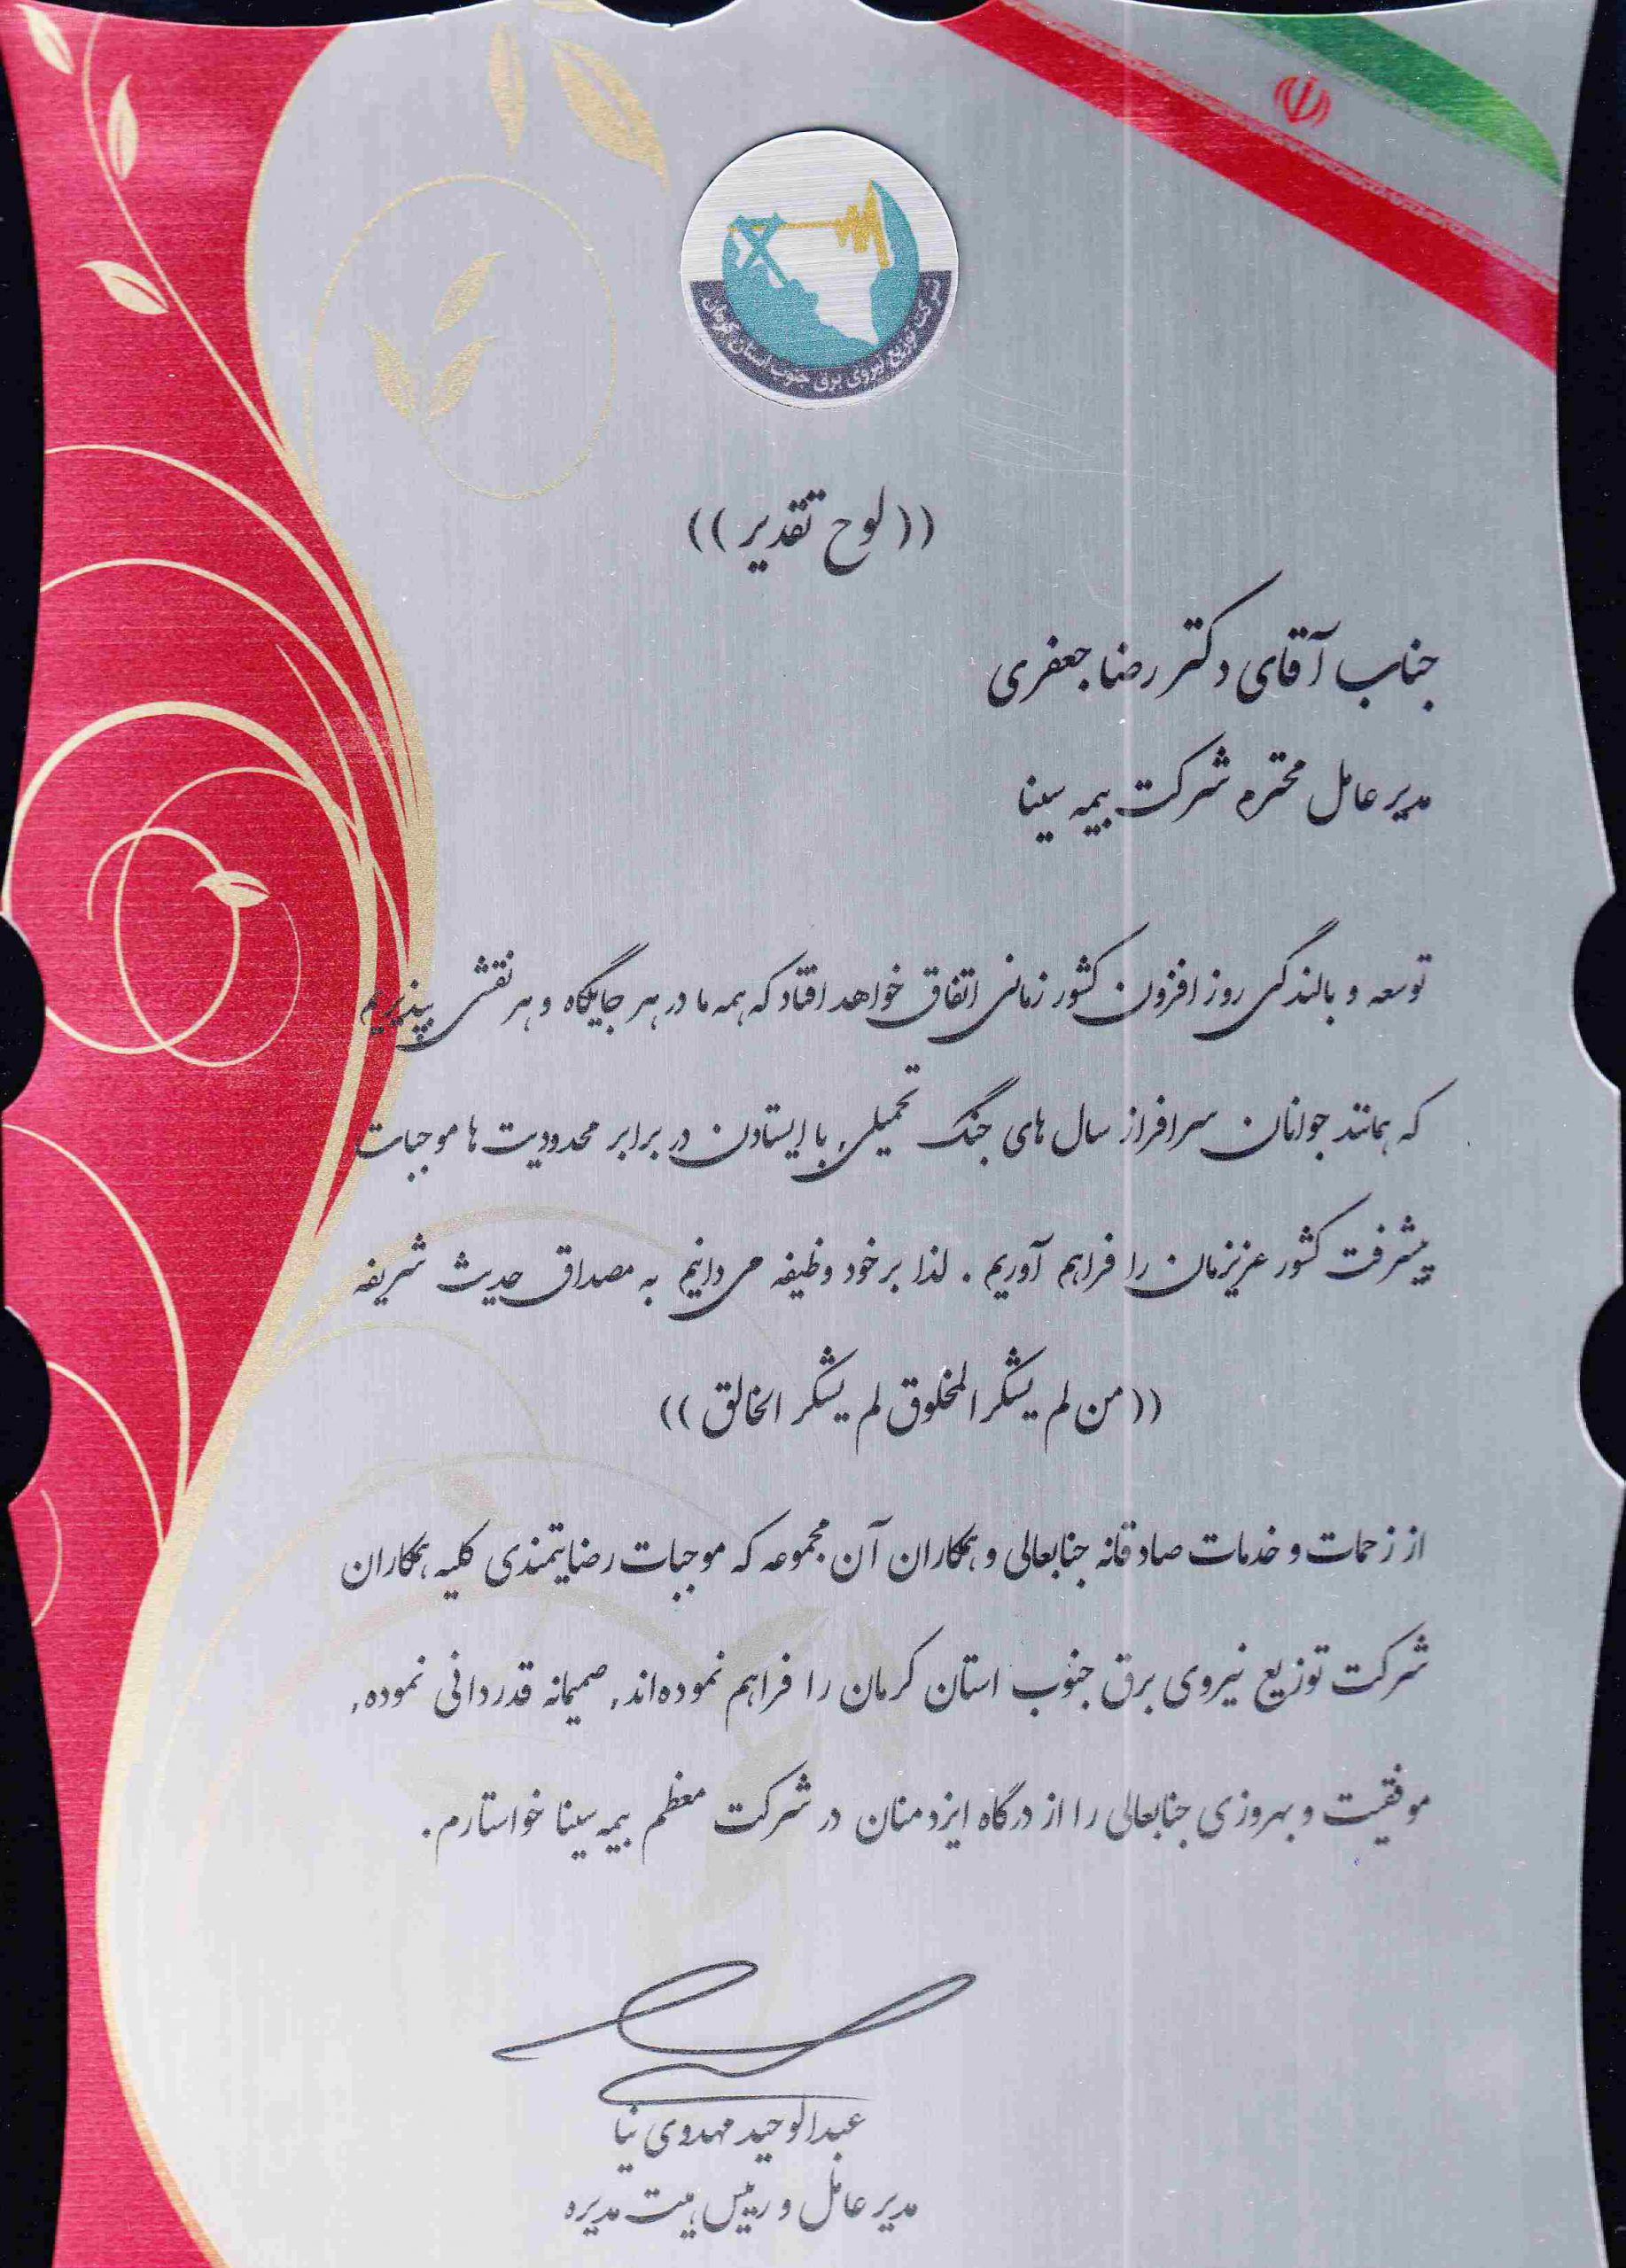 شرکت توزیع نیروی برق جنوب استان کرمان
((لوح تقدیر))
جناب آقای دکتر رضا جعفری
مدیر عامل محترم شرکت بیمه سینا
توسعه و بالندگی روز افزون کشور زمانی اتفاق خواهد افتاد که همه ما در هر جایگاه و هر نقشی بپذیریم
که همانند جوانان سرافراز سال های جنگ تحمیلی، با ایستادن در برابر محدودیت ها موجبات
پیشرفت کشور عزیزمان را فراهم آوریم . لذا بر خود وظیفه می دانیم به مصداق حدیث شریفه
((من لم یشکر المخلوق لم یشکر الخالق))
از زحمات و خدمات صادقانه جنابعالی و همکاران آن مجموعه که موجبات رضایتمندی کلیه همکاران
شرکت توزیع نیروی برق جنوب استان کرمان را فراهم نموده‌اند, صمیمانه قدردانی نموده,
موفقیت و بهروزی جنابعالی را از درگاه ایزد منان در شرکت معظم بیمه سینا خواستارم.
عبدالوحید مهدوی نیا
مدیر عامل و رییس هیت مدیره